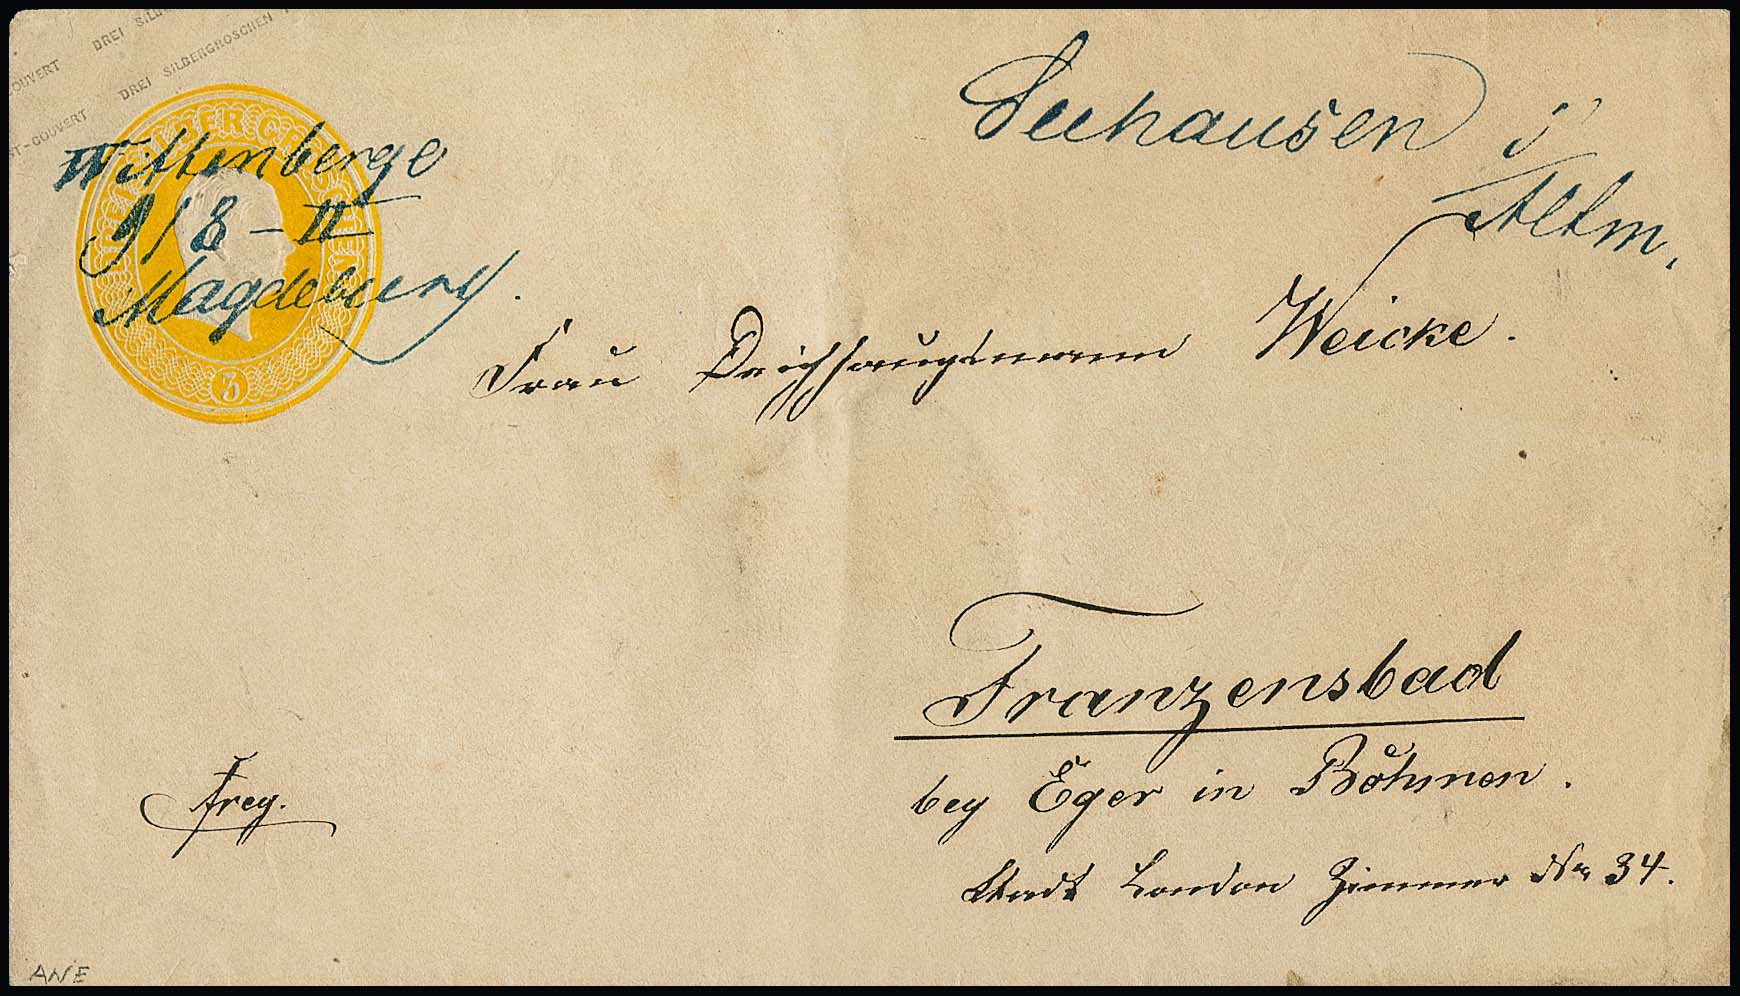 DREI SILB
COUVERT DREI SILBERGROSCHEN
ST-COUVERT
Wittenberge
9/8 - II
Magdeburg.
3
Seehausen i/
Altm.
Frau Deichhauptmann Weicke.
Franzensbad
bey Eger in Böhmen.
Stadt London Zimmer No 34.
frey.
ANE